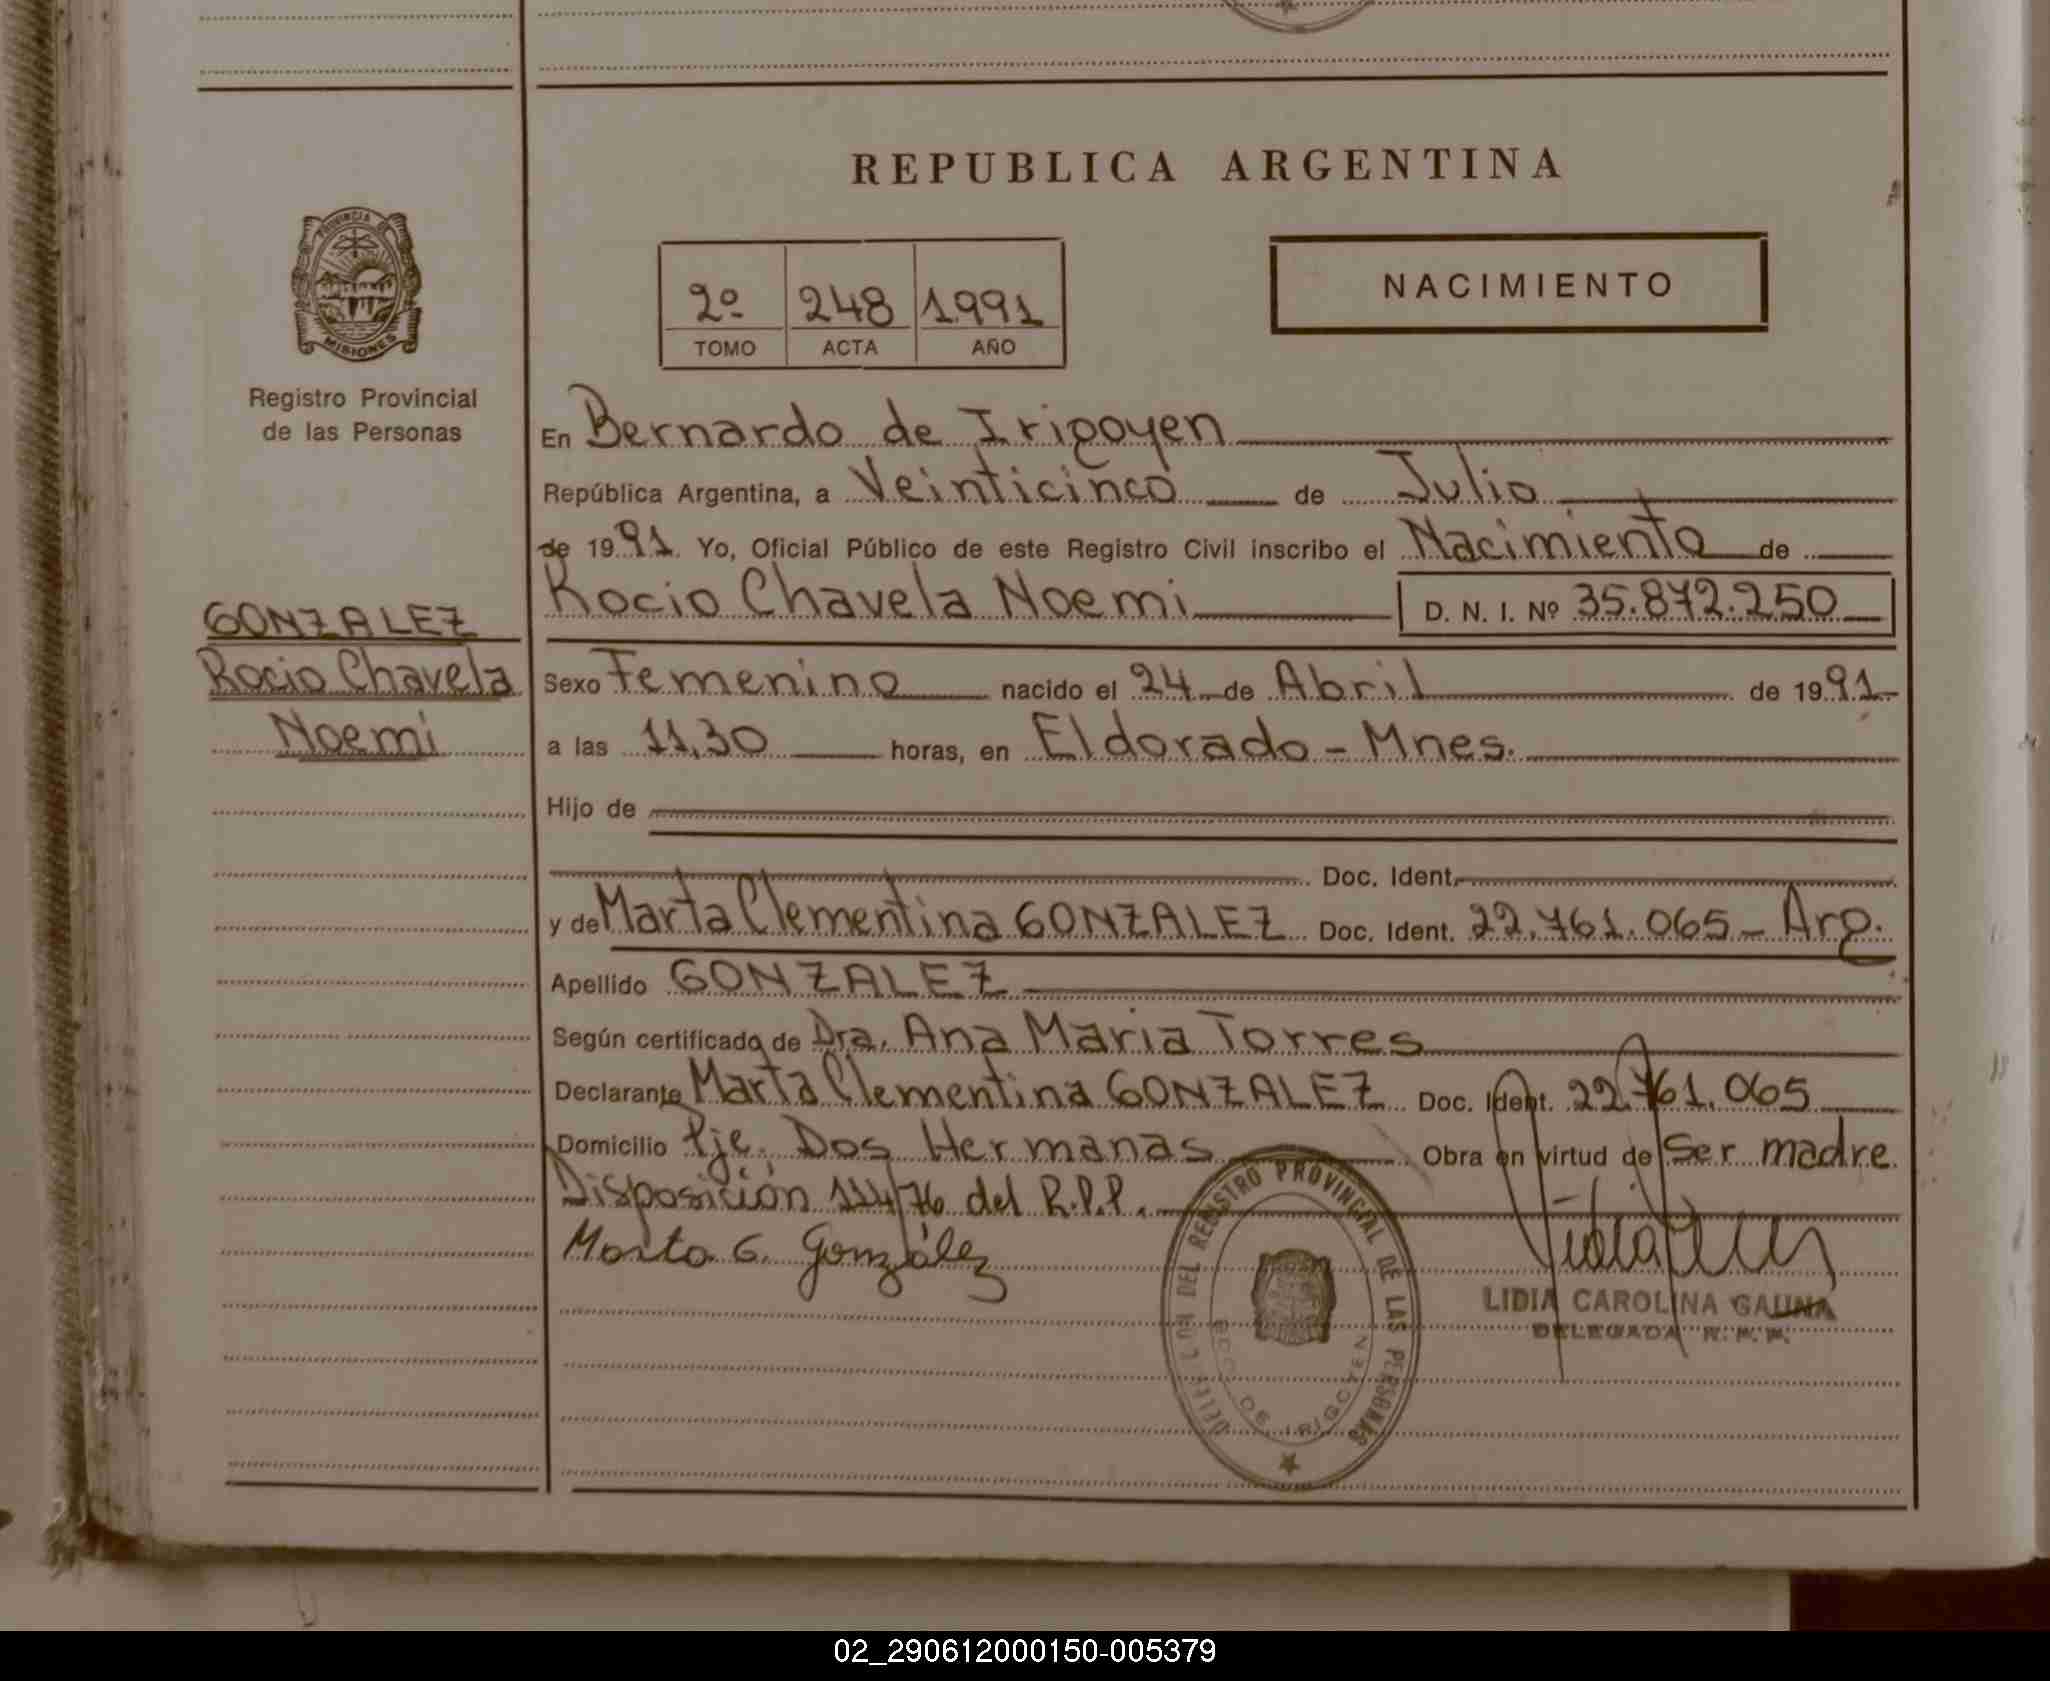 REPUBLICA ARGENTINA
PROVINCIA DE
MISIONES
Registro Provincial
de las Personas
2º 248 1991
TOMO ACTA AÑO
NACIMIENTO
En Bernardo de Irigoyen
República Argentina, a Veinticinco de Julio
de 1991. Yo, Oficial Público de este Registro Civil inscribo el Nacimiento de
Rocio Chavela Noemi D. N. I. Nº 35.872.250
GONZALEZ
Rocio Chavela
Noemi
Sexo Femenino nacido el 24 de Abril de 1991
a las 11,30 horas, en Eldorado - Mnes.
Hijo de
Doc. Ident.
y de Marta Clementina GONZALEZ Doc. Ident. 22.761.065 - Arg.
Apellido GONZALEZ
Según certificado de Dra. Ana Maria Torres
Declarante Marta Clementina GONZALEZ Doc. Ident. 22.761.065
Domicilio Pje. Dos Hermanas Obra en virtud de Ser madre
Disposición 114/76 del R.P.P.
Marta C. González
DELEGACION DEL REGISTRO PROVINCIAL DE LAS PERSONAS
BDO. DE IRIGOYEN
LIDIA CAROLINA GAUNA
DELEGADA R. P. P.
02_290612000150-005379